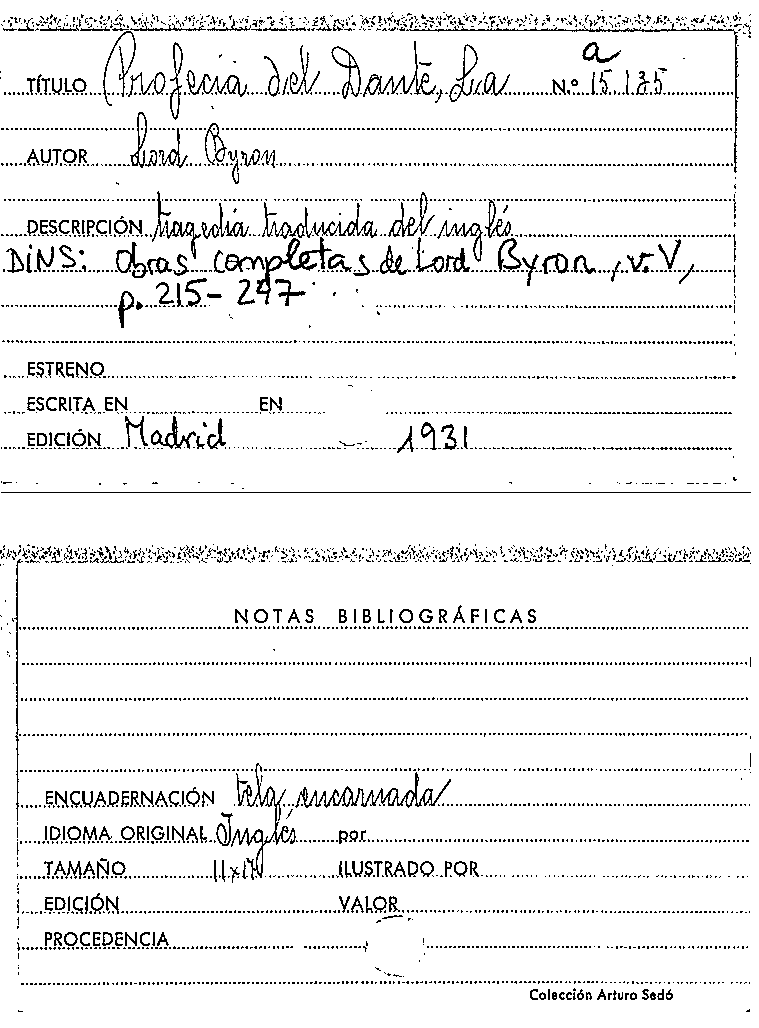 a
TÍTULO Profecia del Dante, La N.º 15.135
AUTOR Lord Byron
DESCRIPCIÓN tragedia traducida del inglés
DINS: Obras completas de Lord Byron, v. V,
p. 215-247
ESTRENO
ESCRITA EN EN
EDICIÓN Madrid 1931
NOTAS BIBLIOGRÁFICAS
ENCUADERNACIÓN tela encarnada
IDIOMA ORIGINAL Inglés por
TAMAÑO 11x17 ILUSTRADO POR
EDICIÓN VALOR
PROCEDENCIA
Colección Arturo Sedó